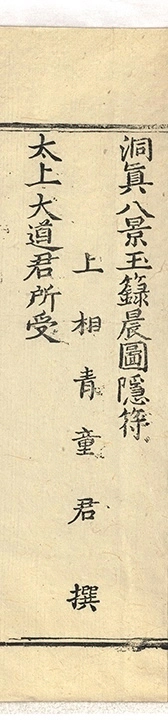 洞眞八景玉籙晨圖隱符
上相青童君撰
太上大道君所受